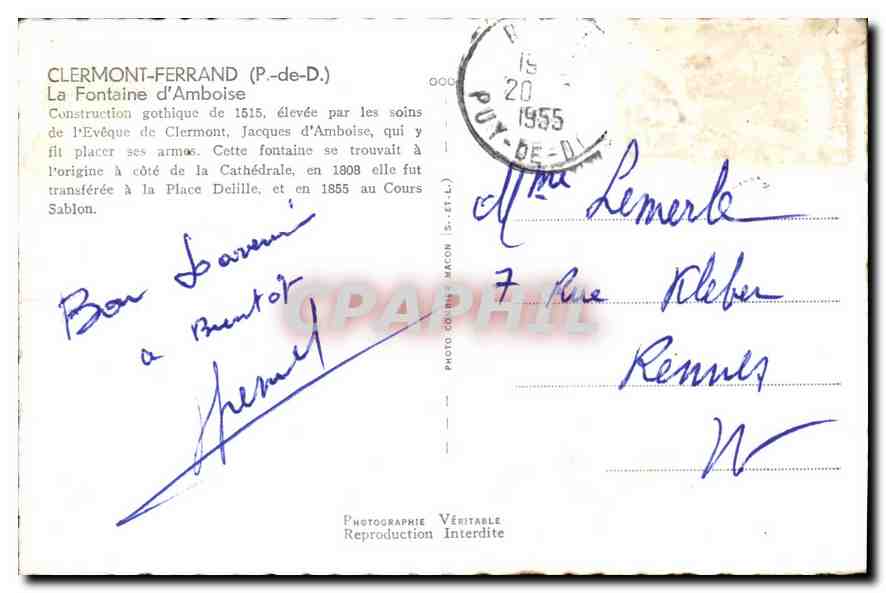 CLERMONT-FERRAND (P.-de-D.)
La Fontaine d'Amboise
Construction gothique de 1515, élevée par les soins
de l'Evêque de Clermont, Jacques d'Amboise, qui y
fit placer ses armes. Cette fontaine se trouvait à
l'origine à côté de la Cathédrale, en 1808 elle fut
transférée à la Place Delille, et en 1855 au Cours
Sablon.
Bon Souvenir
a Bientôt
PHOTO COMBIER MACON (S.-ET-L.)
19
20
1955
PUY-DE-D
Mme Lemerle
7 Rue Kleber
Rennes
CPAPHIL
PHOTOGRAPHIE VÉRITABLE
Reproduction Interdite